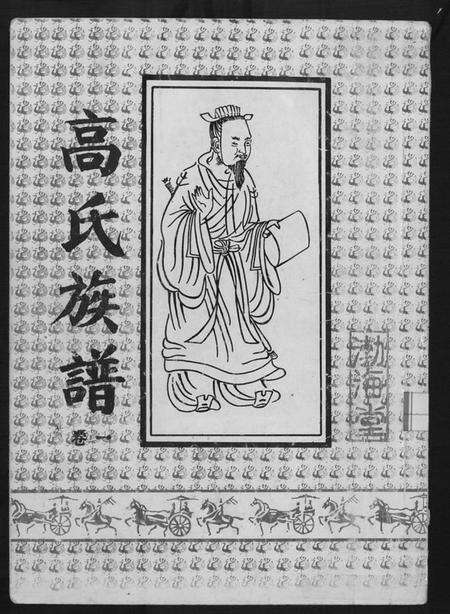 高氏族譜
卷一
渤海堂